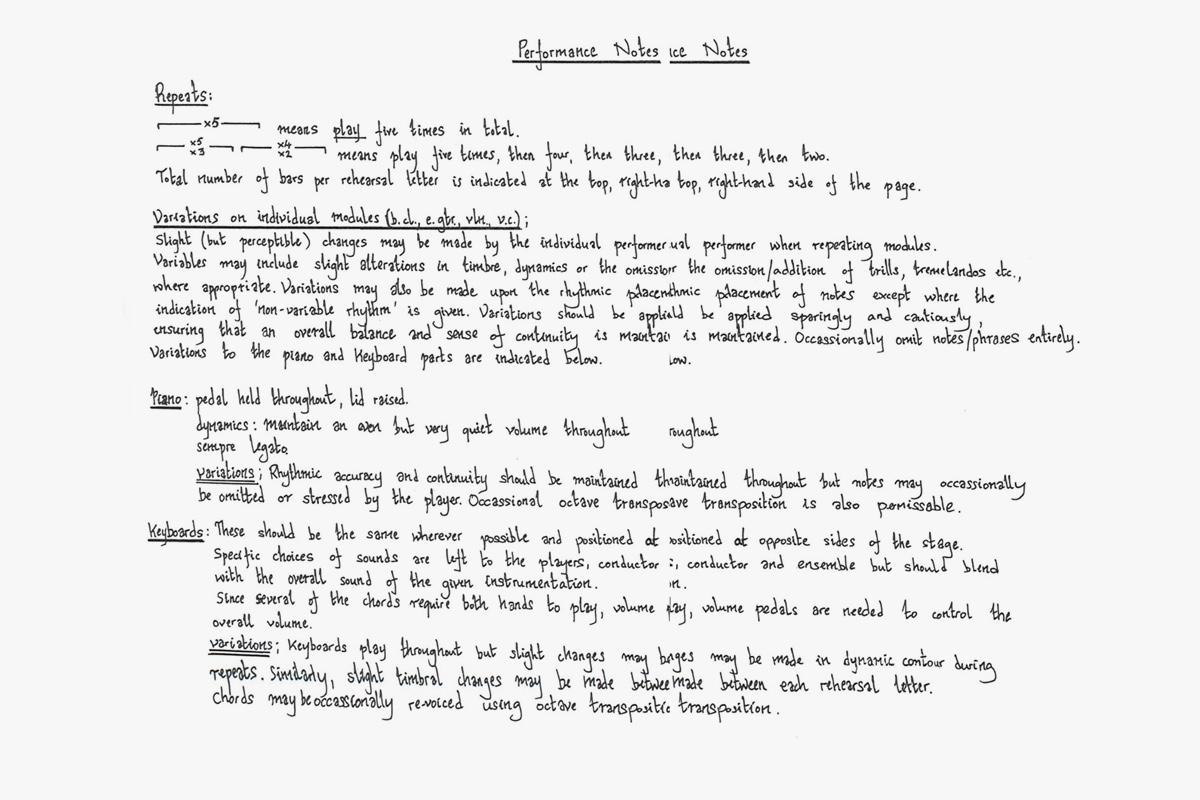 Performance Notes ice Notes
Repeats:
x5 means play five times in total.
x5 x4
x3 x2 means play five times, then four, then three, then three, then two.
Total number of bars per rehearsal letter is indicated at the top, right-ha top, right-hand side of the page.
Variations on individual modules (b.cl., e.gtr., vln., v.c.);
Slight (but perceptible) changes may be made by the individual performer ual performer when repeating modules.
Variables may include slight alterations in timbre, dynamics or the omission the omission/addition of trills, tremelandos etc.,
where appropriate. Variations may also be made upon the rhythmic placenthmic placement of notes except where the
indication of 'non-variable rhythm' is given. Variations should be applield be applied sparingly and cautiously,
ensuring that an overall balance and sense of continuity is maintai is maintained. Occassionally omit notes/phrases entirely.
Variations to the piano and Keyboard parts are indicated below. low.
Piano: pedal held throughout, lid raised.
dynamics: maintain an even but very quiet volume throughout roughout
sempre legato.
variations; Rhythmic accuracy and continuity should be maintained thaintained throughout but notes may occassionally
be omitted or stressed by the player. Occassional octave transposave transposition is also permissable.
Keyboards: These should be the same wherever possible and positioned at ositioned at opposite sides of the stage.
Specific choices of sounds are left to the players, conductor :, conductor and ensemble but should blend
with the overall sound of the given instrumentation. in.
Since several of the chords require both hands to play, volume lay, volume pedals are needed to control the
overall volume.
variations; Keyboards play throughout but slight changes may bnges may be made in dynamic contour during
repeats. Similarly, slight timbral changes may be made betwee made between each rehearsal letter.
Chords may be occassionally re-voiced using octave transpositic transposition.